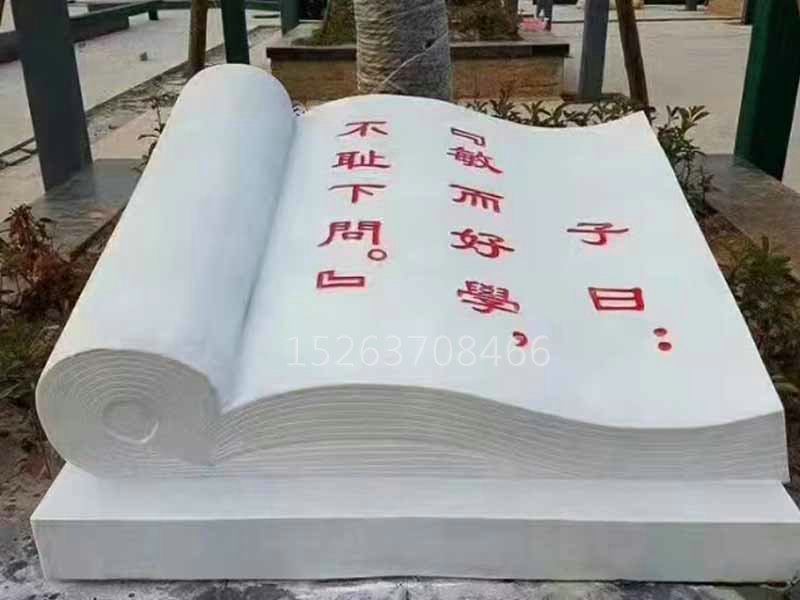 子曰：
『敏而好學，
不耻下問。』
15263708466